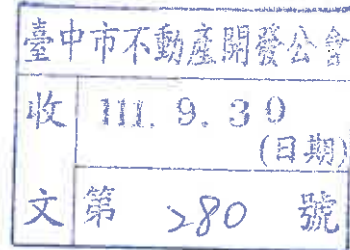 臺中市不動產開發公會
收 111. 9. 30
(日期)
文 第 280 號